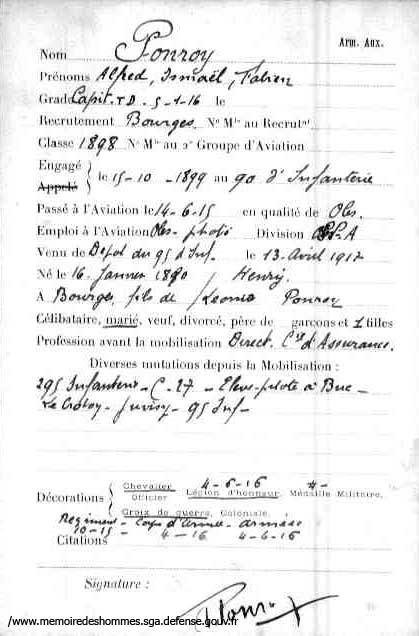 Arm. Aux.
Nom Ponroy
Prénoms Alfred, Ismaël, Fabien
Grade Capit. T.D - 5-1-16 le
Recrutement Bourges. No Mle au Recrutnt
Classe 1898 No Mle au 2e Groupe d'Aviation
Engagé
Appelé
le 15-10-1899 au 90 d'Infanterie
Passé à l'Aviation le 14-6-15 en qualité de Obs.
Emploi à l'Aviation Obs-photo Division
Venu de Depot du 95 d'Inf. le 13. Avril 1917
Né le 16. Janvier 1880 Henry
A Bourges, fils de Ponroy
Célibataire, marié, veuf, divorcé, père de garçons et 1 filles
Profession avant la mobilisation Direct. Cie d'Assurance.
Diverses mutations depuis la Mobilisation :
295 Infanterie - C. 27 - Eleve-pilote à Buc -
Le Crotoy - Juvisy - 95 Inf -
Décorations
Chevalier 4-6-16
Officier Légion d'honneur, Médaille Militaire,
Croix de guerre, Coloniale.
Regiment - Corps d'Armée - armée
10-15 - 4-16 4-6-16
Citations
Signature :
Ponroy
/www.memoiredeshommes.sga.defense.gouv.fr